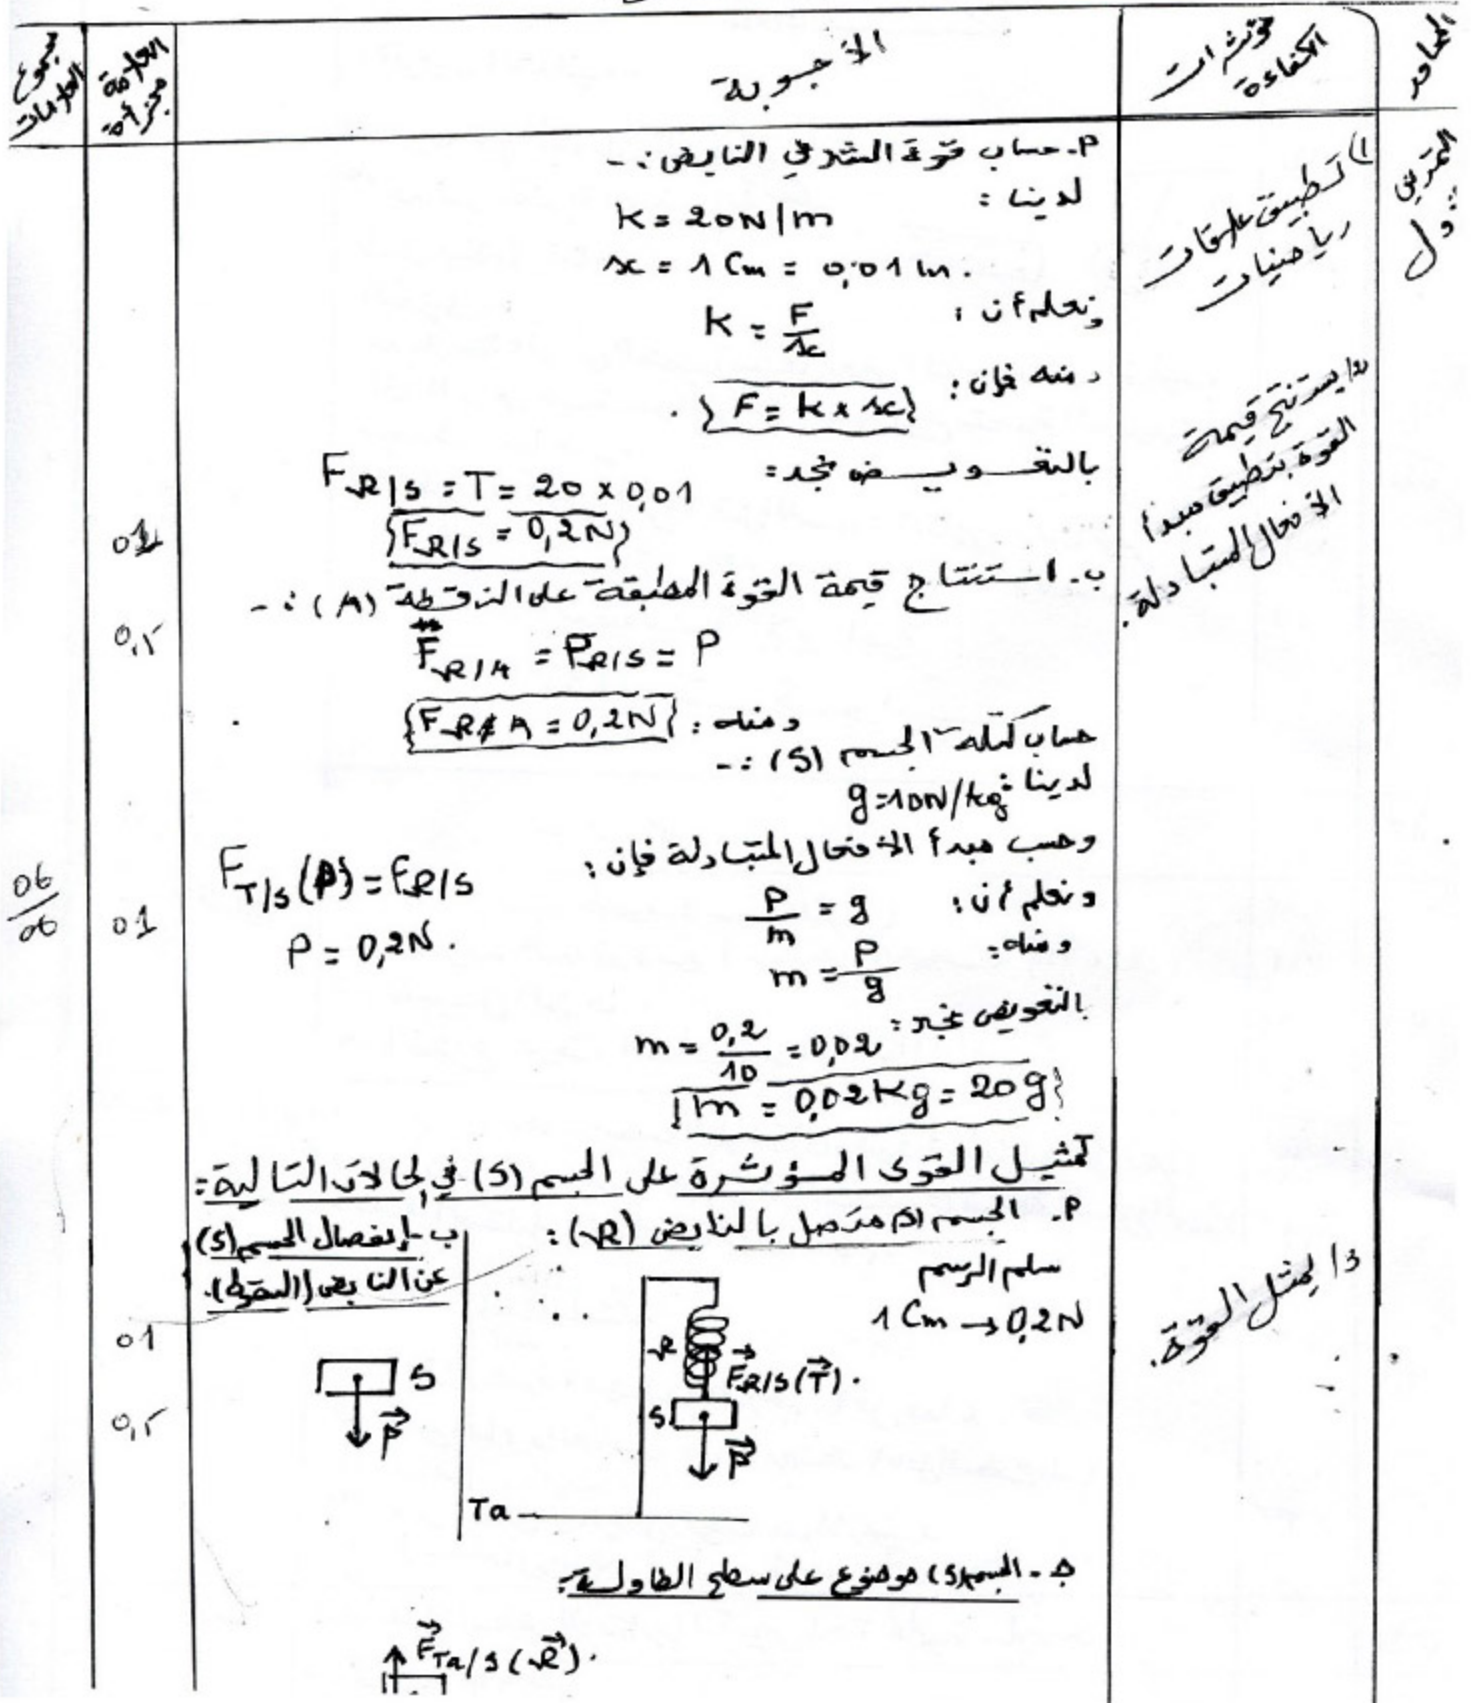 المحاور
مؤشرات الكفاءة
الأجوبة
العلامة مجزأة
مجموع العلامات
التمرين
1) تطبيق علاقات
رياضيات
2) يستنتج قيمة
القوة بتطبيق مبدأ
الأفعال المتبادلة.
3) يمثل القوة.
P. حساب قوة الشد في النابض :-
لدينا :
k = 20N/m
x = 1 Cm = 0,01 m.
ونعلم أن :
k = F/x
ومنه فإن :
F = k × x .
بالتعويض نجد :
F R/S = T = 20 × 0,01
F R/S = 0,2N
01
ب. استنتاج قيمة القوة المطبقة على النقطة (A) :-
0,5
F R/A = F R/S = P
ومنه : F R/A = 0,2N
حساب كتلة الجسم (S) :-
لدينا : g = 10N/kg
وحسب مبدأ الأفعال المتبادلة فإن :
F T/S (P) = F R/S
P = 0,2N .
ونعلم أن : P/m = g
ومنه : m = P/g
01
06/06
بالتعويض نجد :
m = 0,2/10 = 0,02
m = 0,02 Kg = 20g
تمثيل القوى المؤثرة على الجسم (S) في الحالات التالية :
P. الجسم (S) متصل بالنابض (R) :
سلم الرسم
1 Cm → 0,2N
R
F R/S (T) .
S
P
Ta
ب - إنفصال الجسم (S)
عن النابض (السقوط).
01
S
P
0,5
ج - الجسم (S) موضوع على سطح الطاولة :
F Ta/S (R) .